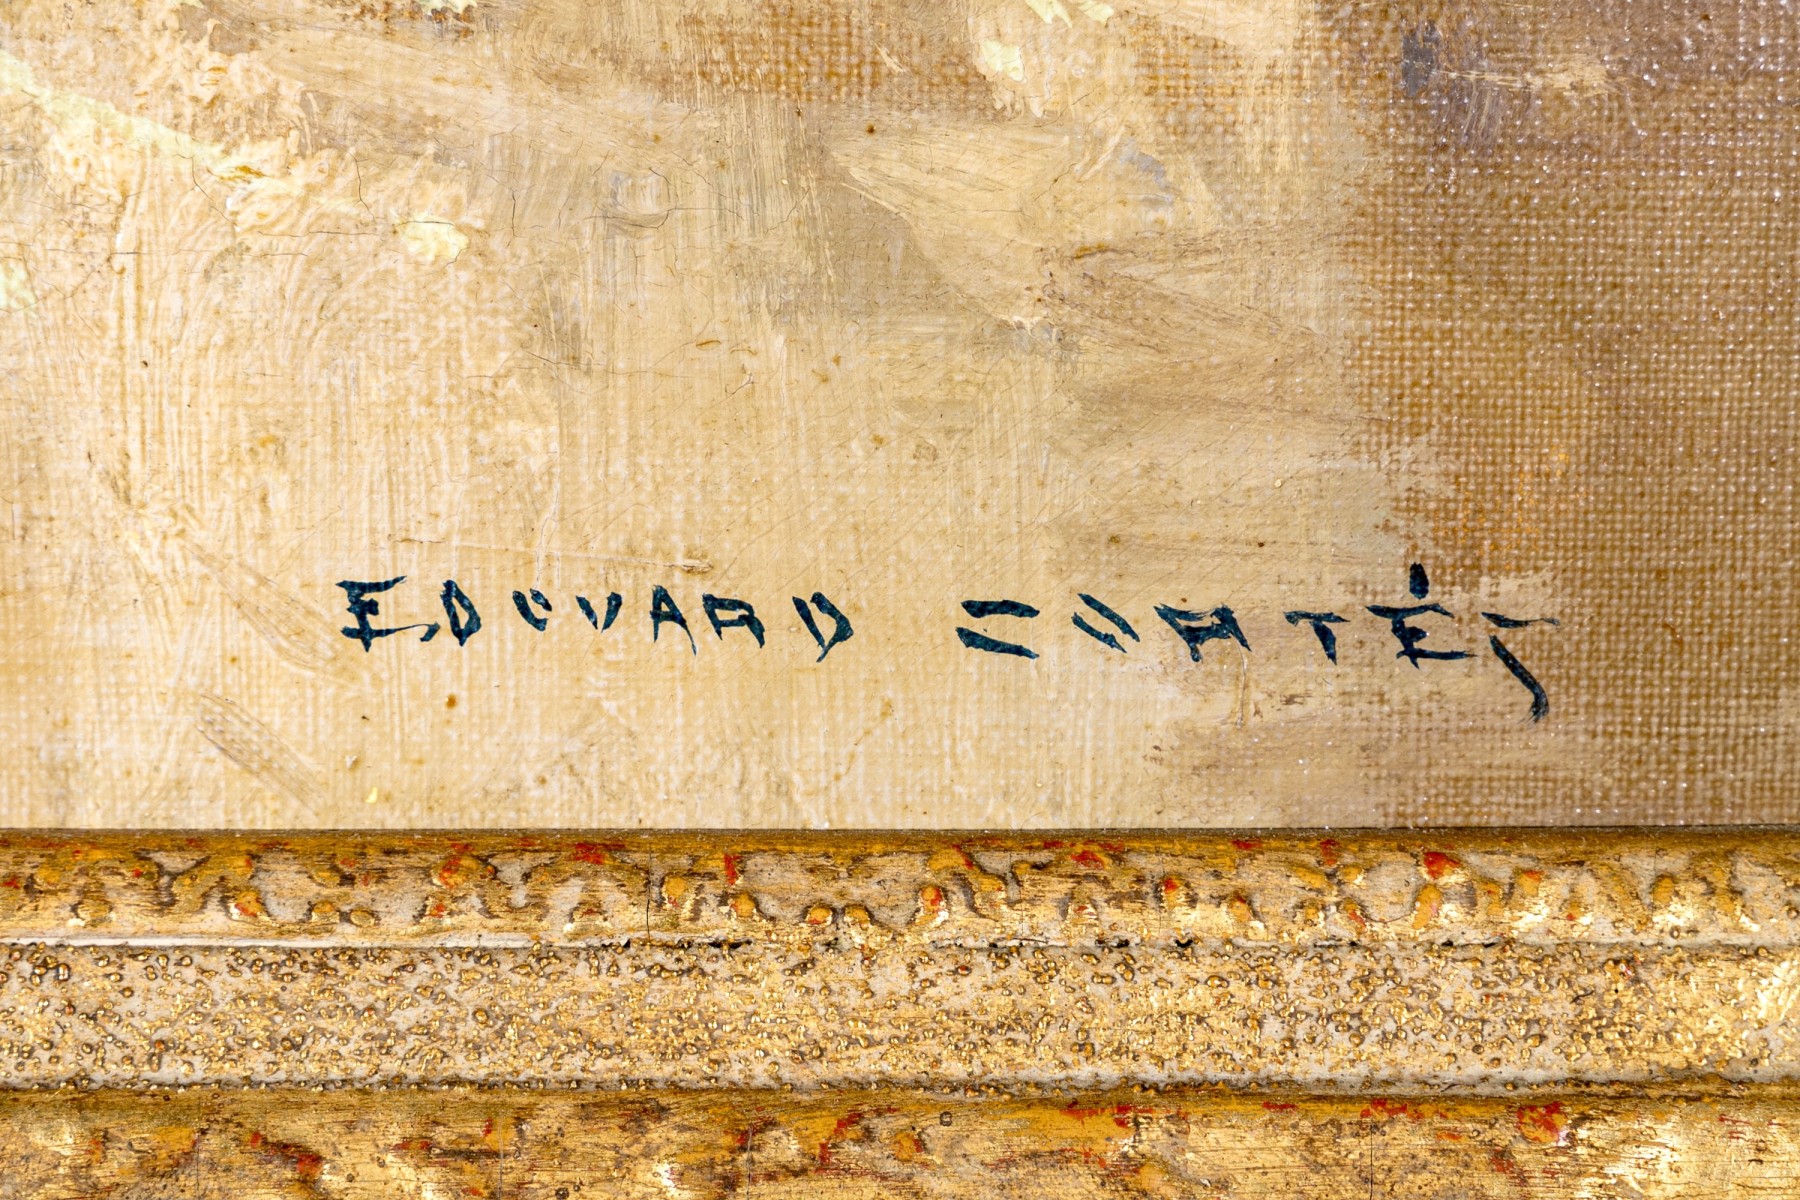 EDOUARD CORTÉS